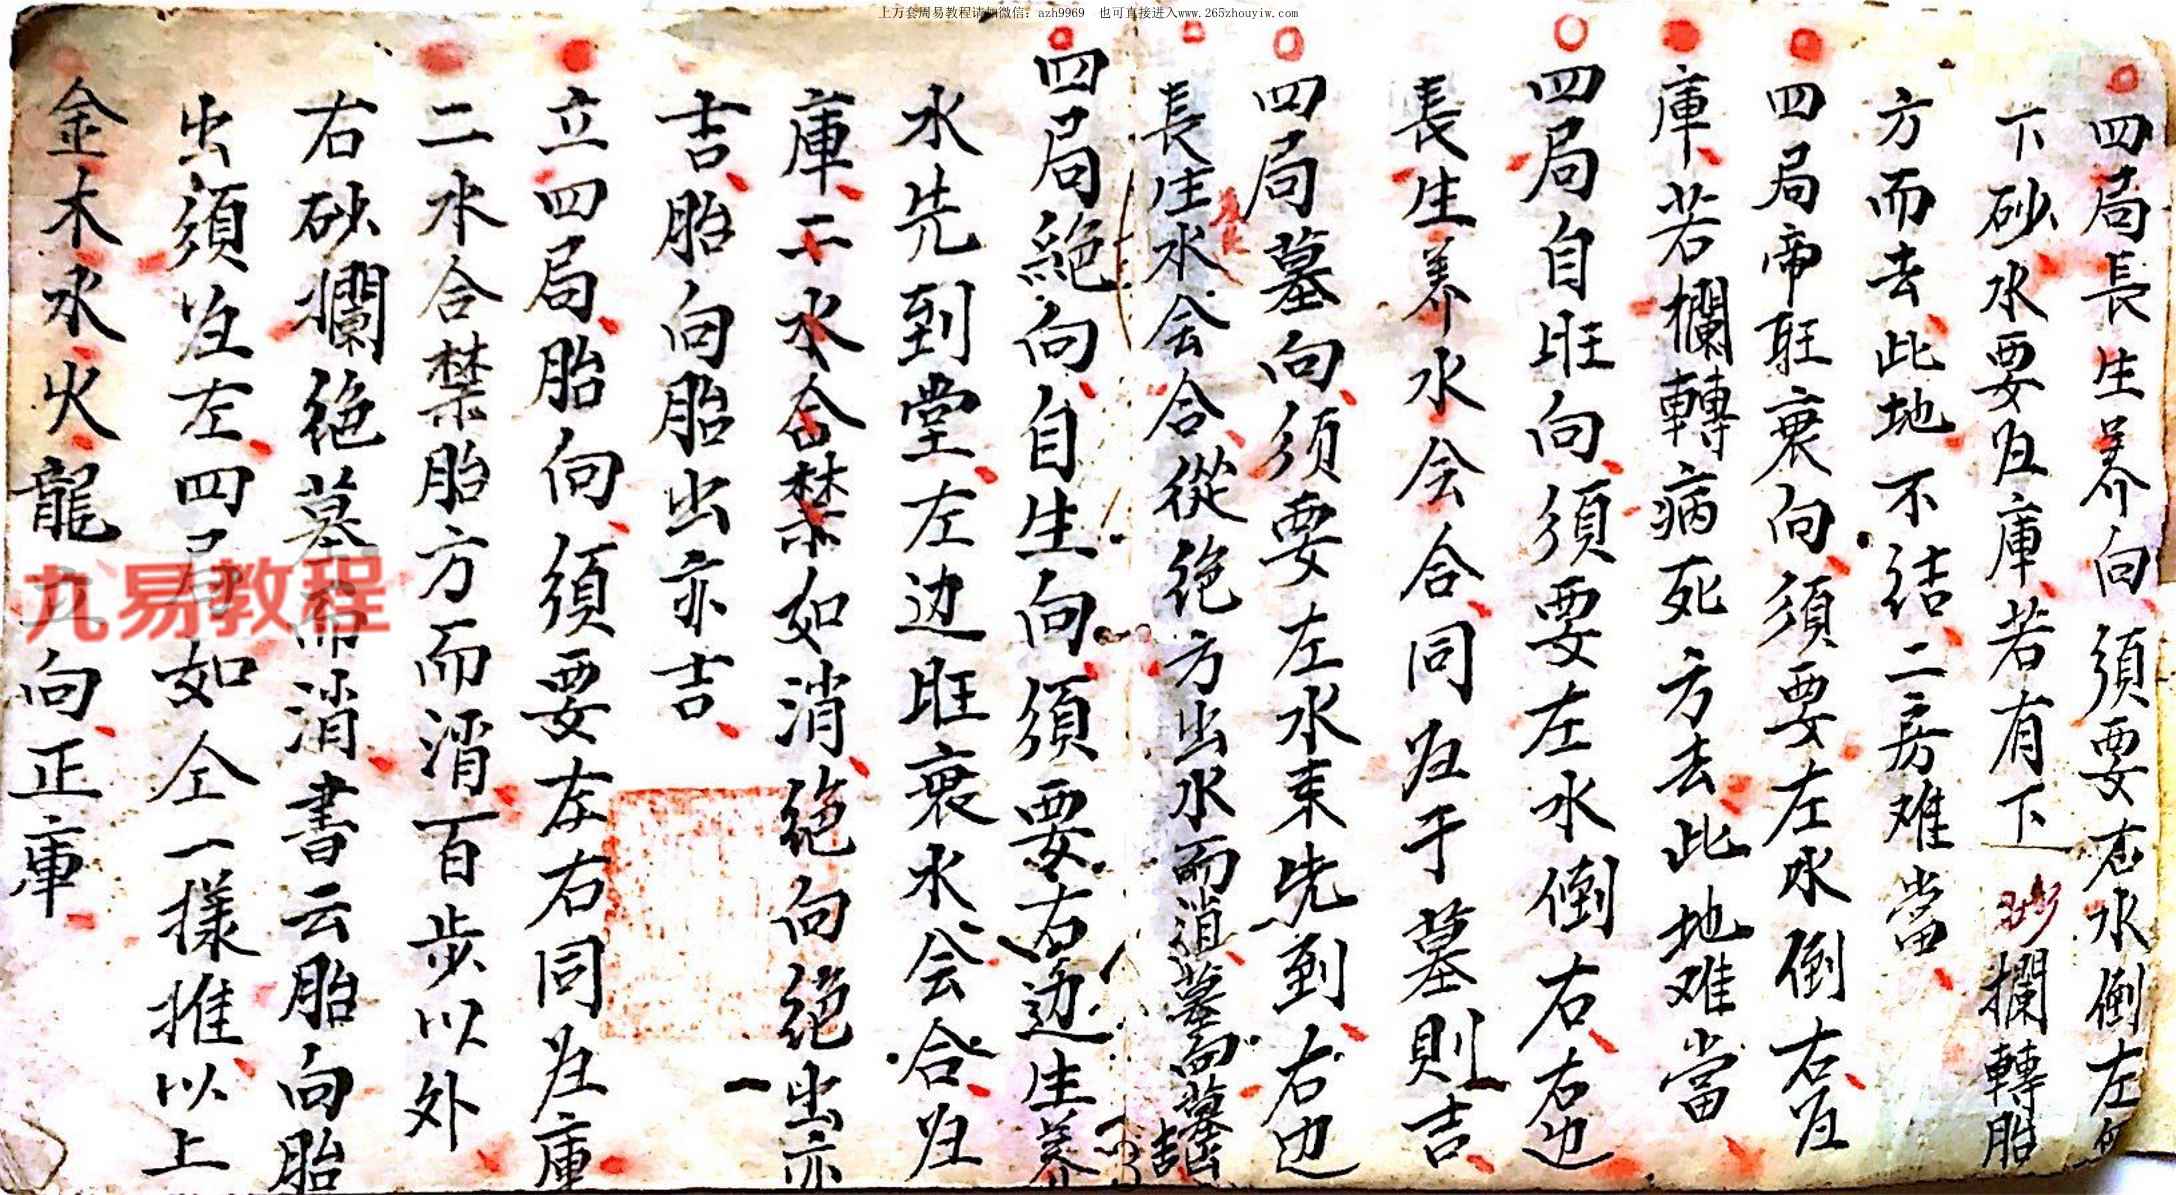 上万套周易教程请加微信：azh9969 也可直接进入www.265zhouyiw.com
四局長生养向須要右水倒左
下砂水要归庫若有下砂攔轉胎
方而去此地不结二房难當
四局帝旺衰向須要左水倒右归
庫若攔轉病死方去此地难當
四局自旺向須要左水倒右右边
長生养水会合同归于墓則吉
四局墓向须要左水来先到右边
長生水会合從绝方出水而消墓向墓出
四局絕向自生向須要右边生养
水先到堂左边旺衰水会合归
庫二水合禁如消绝向绝出亦
吉胎向胎出亦吉
立四局胎向須要左右同归庫
二水合禁胎方而消百步以外
右砂攔绝墓而消書云胎向胎
出須归左四局如仝一樣推以上
金木水火龍立向正庫
九易教程